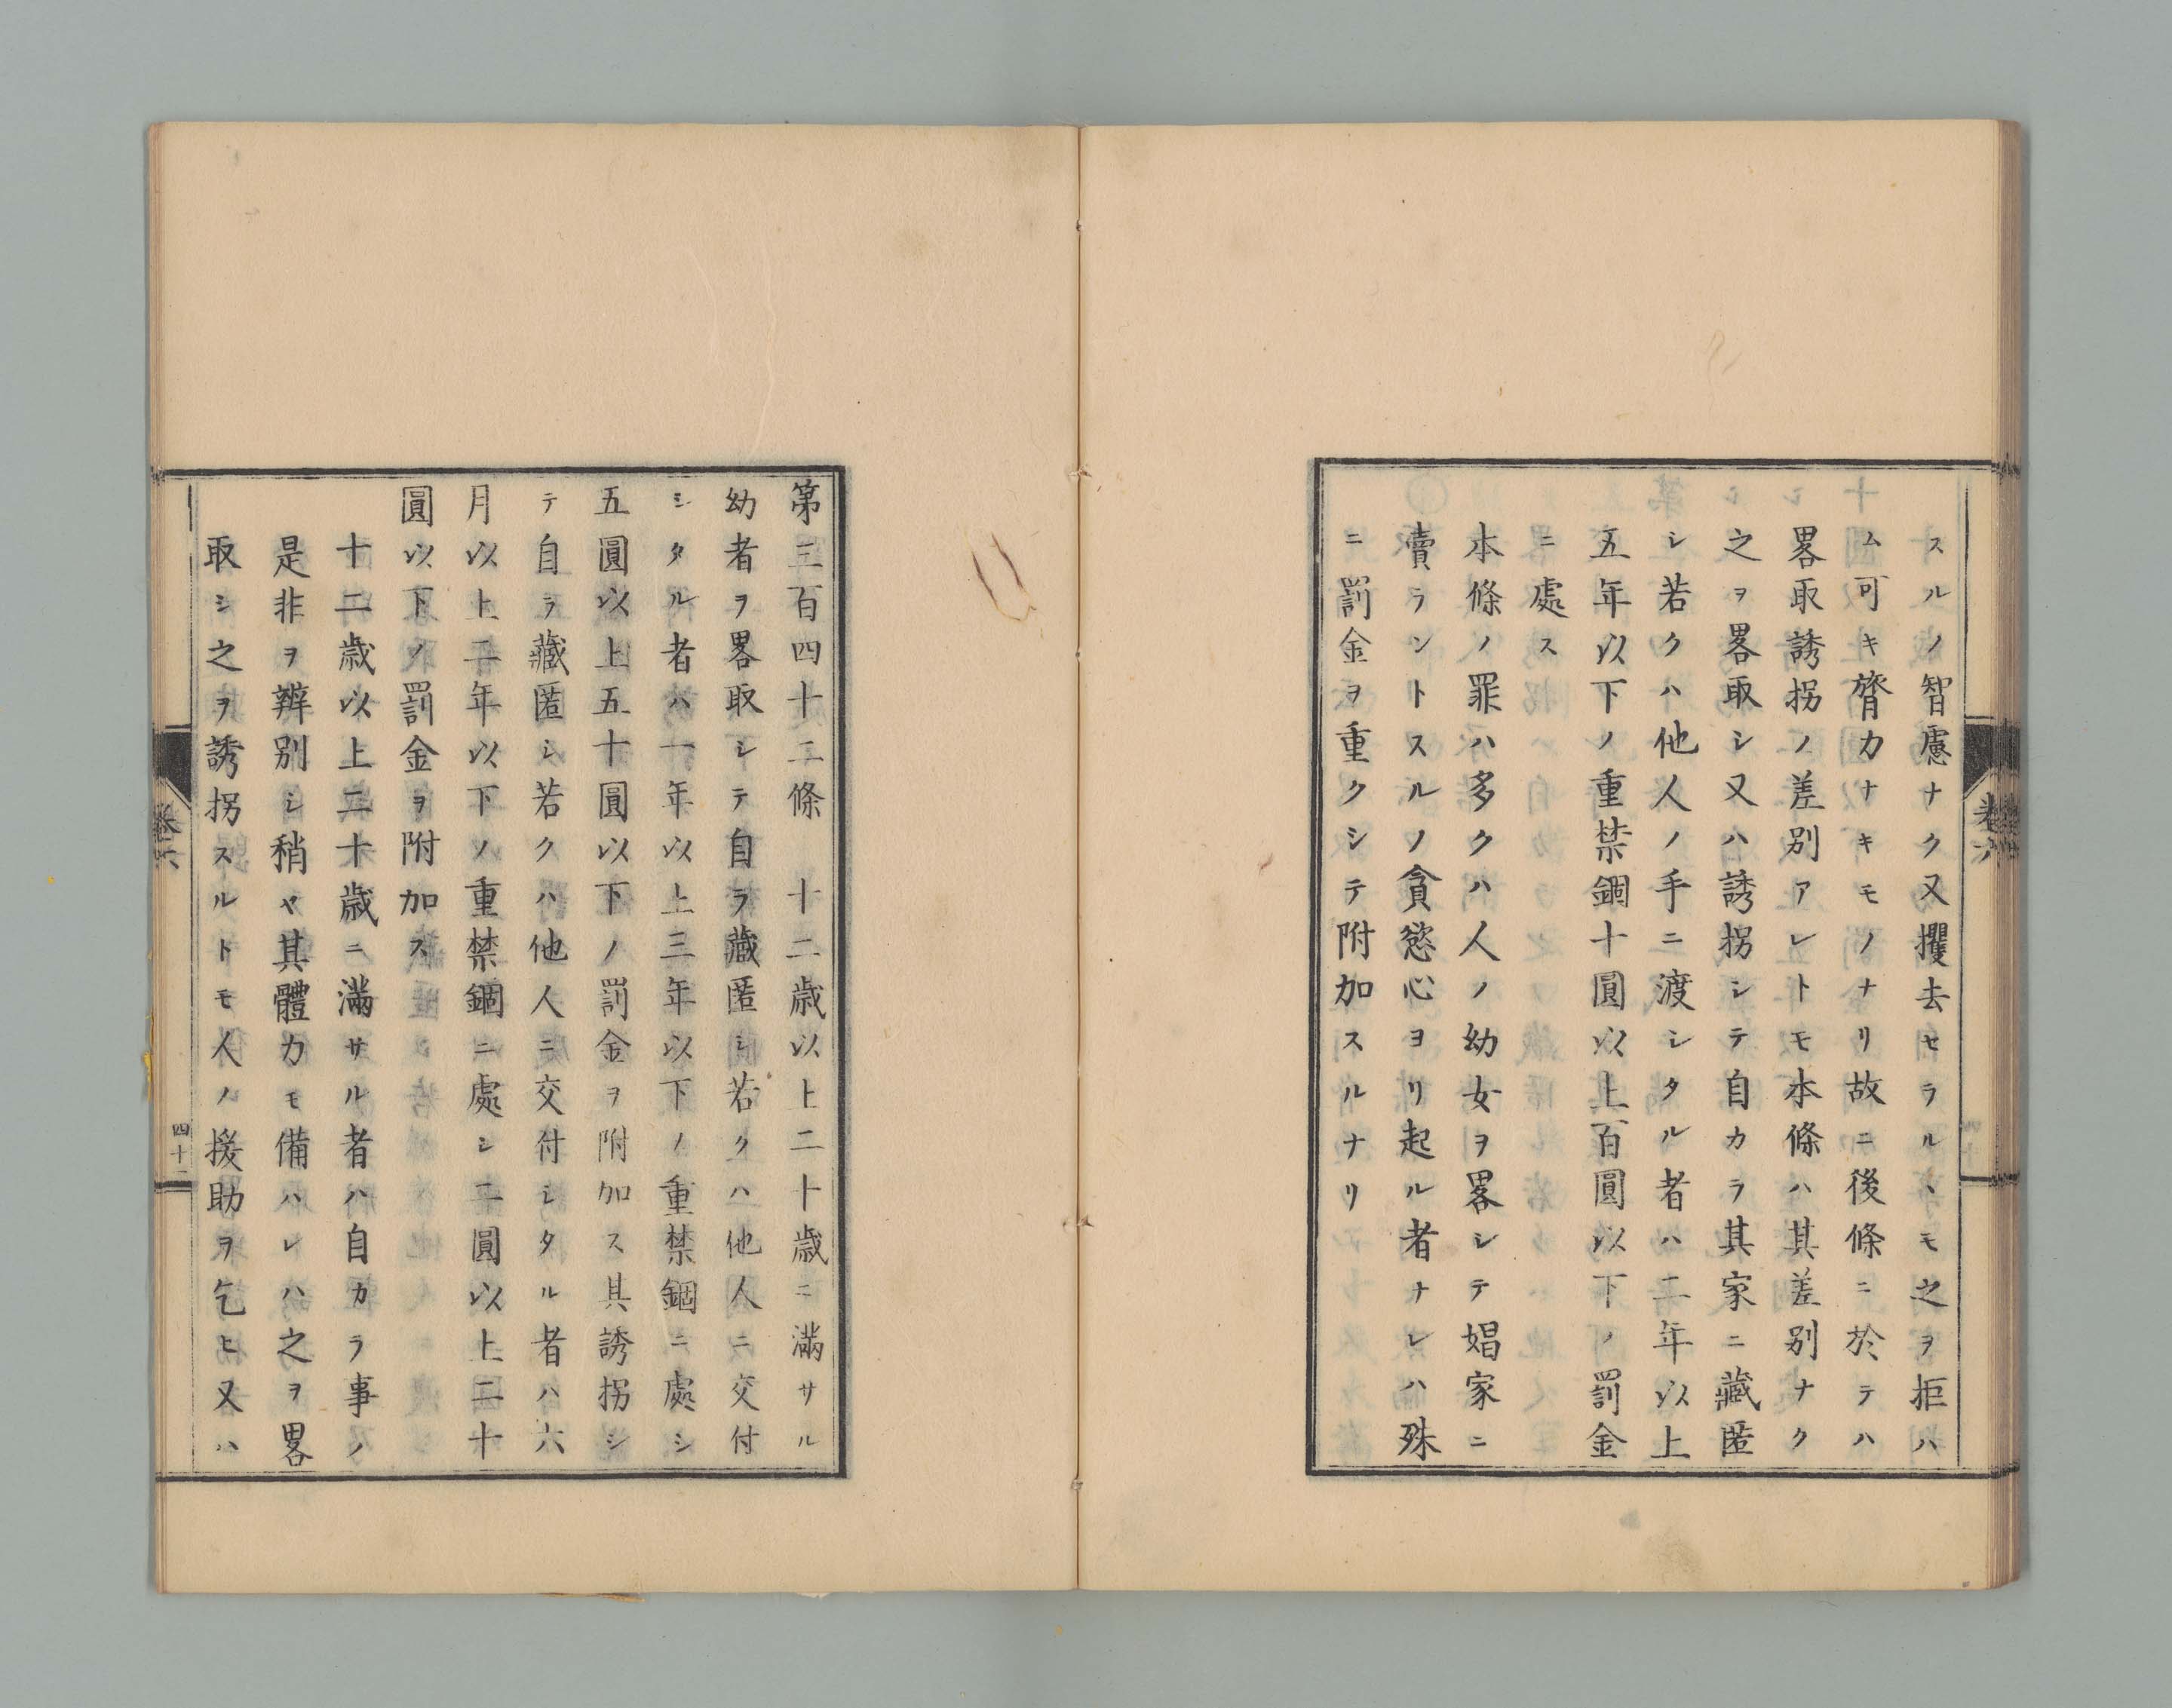 スルノ智慮ナク又攫去セラルヽモ之ヲ拒ハ
ム可キ膂力ナキモノナリ故ニ後條ニ於テハ
畧取誘拐ノ差別アレトモ本條ハ其差別ナク
之ヲ畧取シ又ハ誘拐シテ自カラ其家ニ藏匿
シ若クハ他人ノ手ニ渡シタル者ハ二年以上
五年以下ノ重禁錮十圓以上百圓以下ノ罰金
ニ處ス
本條ノ罪ハ多クハ人ノ幼女ヲ畧シテ娼家ニ
賣ラントスルノ貪慾心ヨリ起ル者ナレハ殊
ニ罰金ヲ重クシテ附加スルナリ
第三百四十二條　十二歳以上二十歳ニ滿サル
幼者ヲ畧取シテ自ラ藏匿シ若クハ他人ニ交付
シタル者ハ一年以上三年以下ノ重禁錮ニ處シ
五圓以上五十圓以下ノ罰金ヲ附加ス其誘拐シ
テ自ラ藏匿シ若クハ他人ニ交付シタル者ハ六
月以上二年以下ノ重禁錮ニ處シ二圓以上二十
圓以下ノ罰金ヲ附加ス
十二歳以上二十歳ニ滿サル者ハ自カラ事ノ
是非ヲ辨別シ稍ヤ其體力モ備ハレハ之ヲ畧
取シ之ヲ誘拐スルトモ人ノ援助ヲ乞ヒ又ハ
卷六
四十二